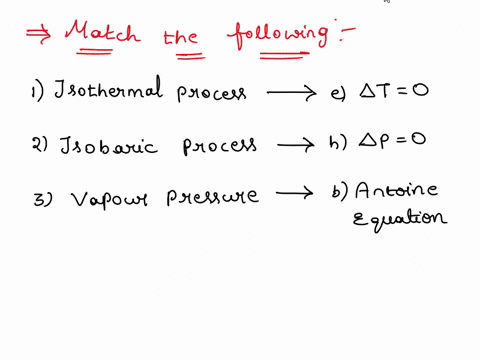 ⇒ Match the following:-
1) Isothermal process → e) ΔT = 0
2) Isobaric process → h) ΔP = 0
3) Vapour pressure → b) Antoine
Equation